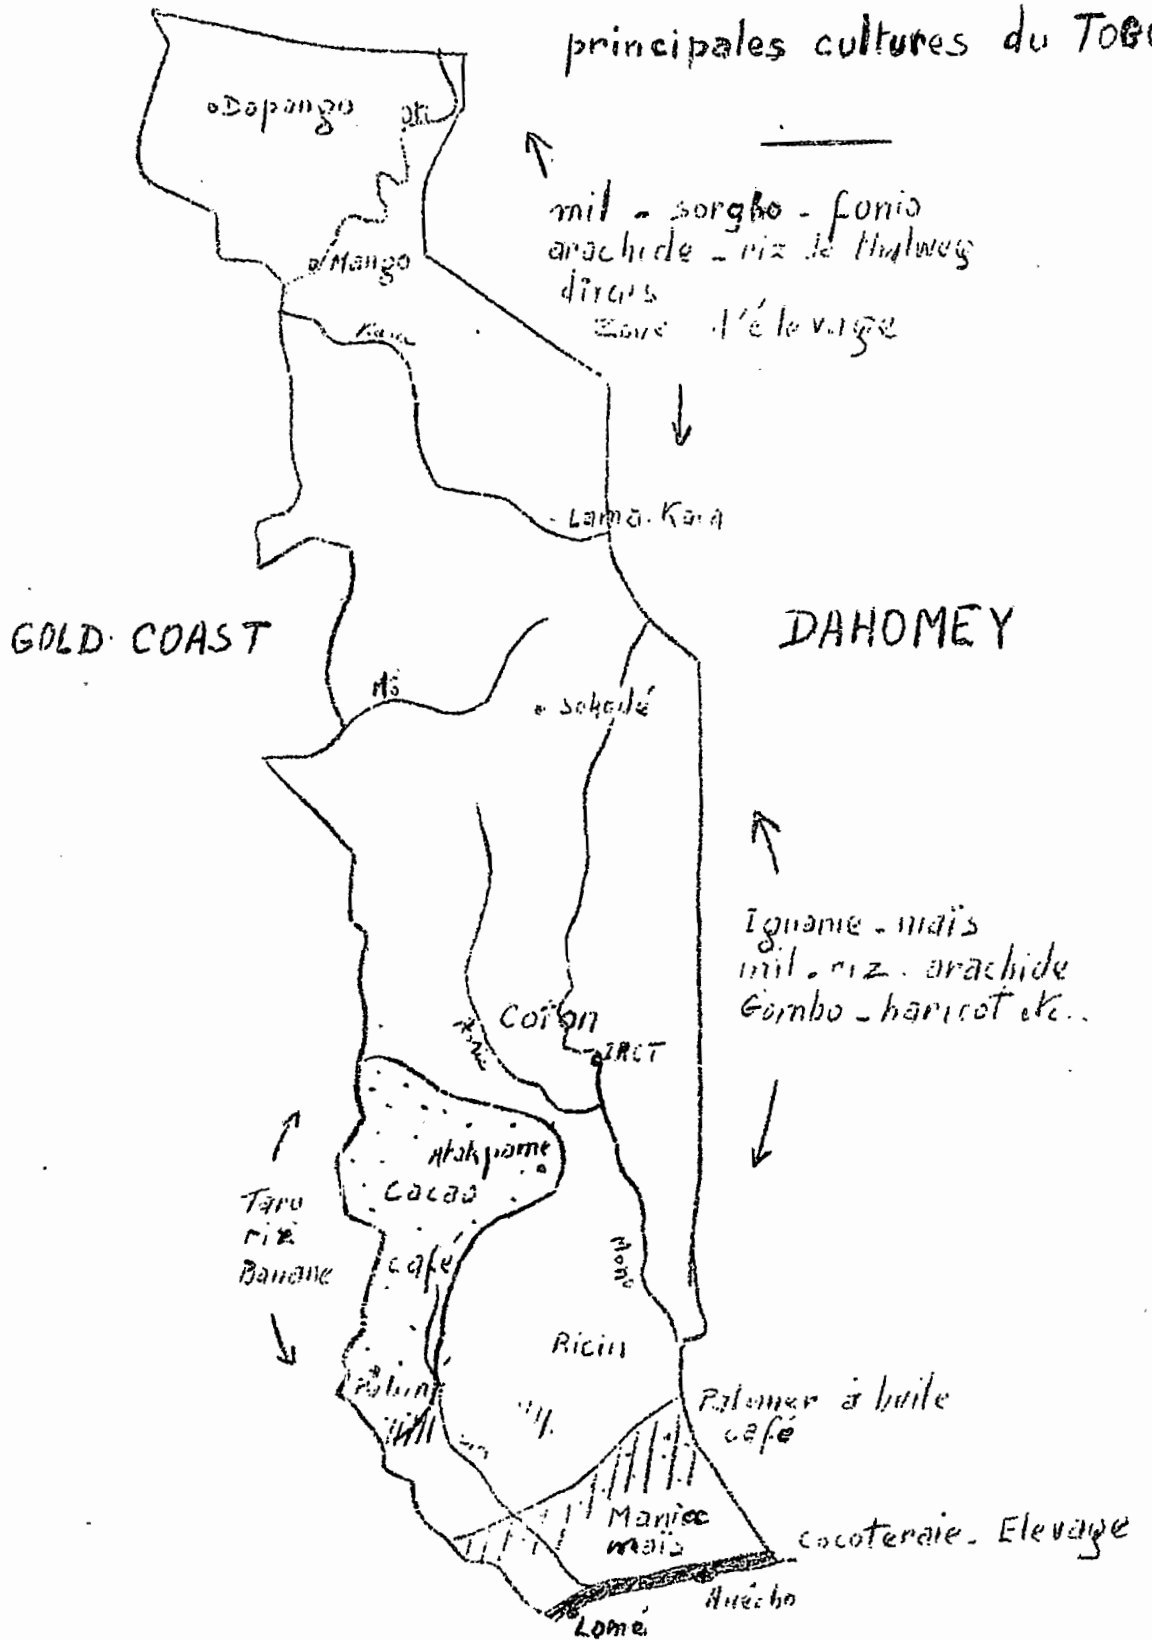 principales cultures du TOGO
Dapango
Oti
mil - sorgho - fonio
arachide - riz de thalweg
Zone d'élevage
Mango
Kara
Lama-Kara
GOLD COAST
DAHOMEY
Mô
Sokodé
Igname - maïs
mil - riz - arachide
Gombo - haricot etc..
Coton
IRCT
Atakpame
Cacao
Taro
riz
Banane
café
Mono
Ricin
Palimé
Palmier à huile
café
Manioc
maïs
cocoteraie - Elevage
Anécho
Lomé